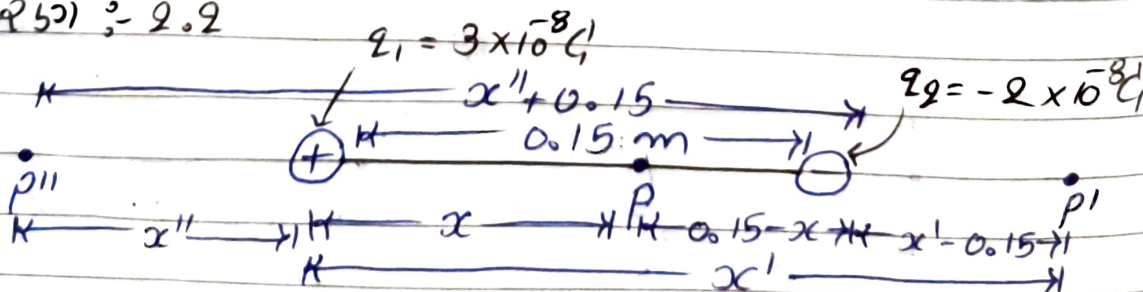 :- 2.2
q₁ = 3 × 10⁻⁸ C
x'' + 0.15
q₂ = - 2 × 10⁻⁸ C
0.15 m
+ −
P'' P P'
x'' x 0.15 - x x' - 0.15
x'